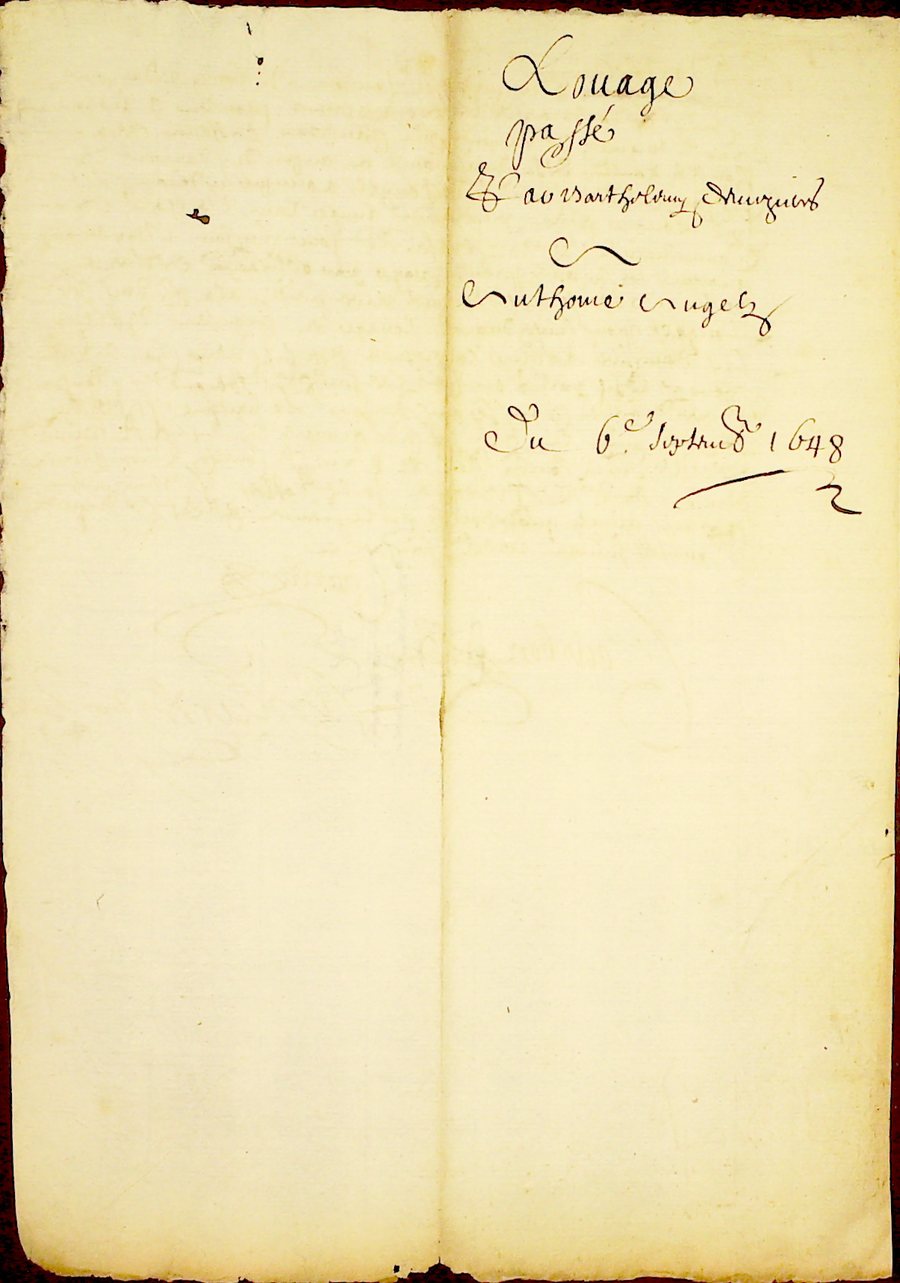 Louage
passé
Par Bartholemy
A
Anthoine Angely
Du 6.e Septemb 1648